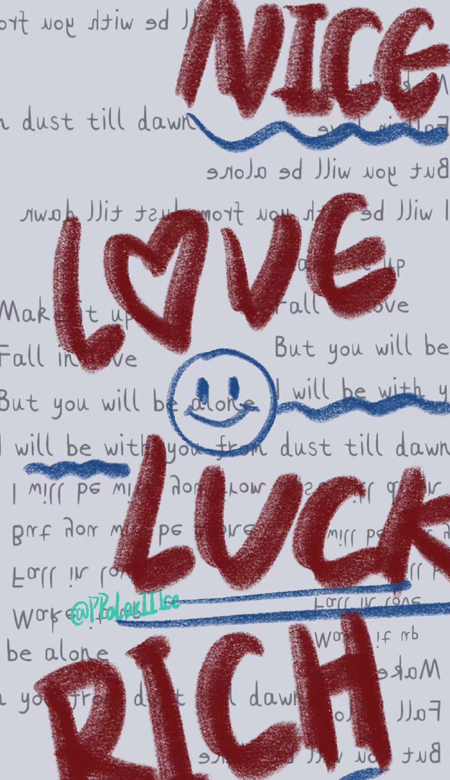 be with you
NICE
dust till dawn
But you will be alone
I will be with you from dust till dawn
LOVE
up
Make it up
Fall in love
Fall in love
But you will be
But you will be alone
I will be with y
I will be with you from dust till dawn
LUCK
I will be
But you be
ll be
Fall in lo
@PPolarIIIce
Fall in love
Make it up
be alone
Make
you from dust till dawn
RICH
Fall
But you will be